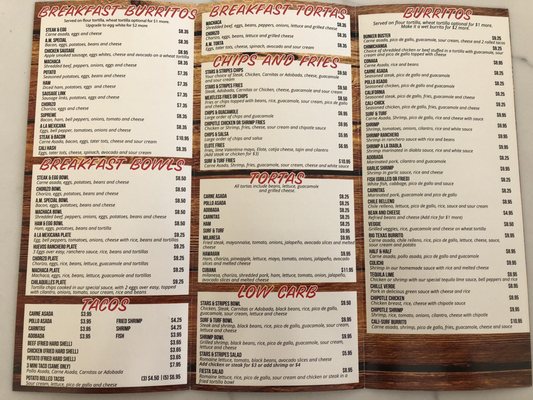 BREAKFAST BURRITOS
Served on flour tortilla, wheat tortilla optional for $1 more.
Upgrade to egg white for $2 more
STEAK & EGG $8.35
Carne asada, eggs, potatoes and cheese
A.M. SPECIAL $8.35
Bacon, eggs, potatoes, beans and cheese
CHICKEN SAUSAGE $9.95
MACHACA $8.35
Shredded beef, peppers, onions, eggs and cheese
POTATO $7.35
Seasoned potatoes, eggs, beans and cheese
HAM $7.35
Diced ham, potatoes, eggs and cheese
SAUSAGE LINK $7.35
Sausage links, potatoes, eggs and cheese
CHORIZO $7.35
Chorizo, eggs and cheese
SUPREME
Bacon, ham, bell peppers, onions, tomato and cheese
A LA MEXICANA
Eggs, bell pepper, tomatoes, onions and cheese
STEAK & BACON $10.95
Carne Asada, bacon, eggs, tater tots, cheese and sour cream
CALI FRESH
BREAKFAST BOWLS
STEAK & EGG BOWL $8.50
Carne asada, eggs, potatoes, beans and cheese
CHORIZO BOWL $8.50
Chorizo, eggs, potatoes, beans and cheese
A.M. SPECIAL BOWL $8.50
Bacon, eggs, potatoes, beans and cheese
MACHACA BOWL $8.50
Shredded beef, peppers, onions, eggs, potatoes, beans and cheese
HAM & EGG BOWL $8.50
Ham, eggs, potatoes, beans and tortilla
A LA MEXICANA PLATE $9.25
Egg, bell peppers, tomatoes, onions and cheese, with rice, beans and tortillas
HUEVOS RANCHERO PLATE $9.25
3 Eggs over easy, ranchero sauce, rice, beans and tortillas
CHORIZO PLATE $9.25
Chorizo, eggs, rice, beans, lettuce, guacamole and tortillas
MACHACA PLATE $9.25
Machaca, eggs, rice, beans, lettuce, guacamole and tortillas
CHILAQUILES PLATE $9.25
Tortilla chips cooked in our special sauce, with 2 eggs over easy, topped
with cilantro, onions, tomato, sour cream, rice and beans
TACOS
CARNE ASADA $3.95
POLLO ASADO $3.95 FRIED SHRIMP $4.25
CARNITAS $3.95 SHRIMP $4.25
ADOBADA $3.95 FISH $3.65
BEEF (FRIED HARD SHELL) $3.65
CHICKEN (FRIED HARD SHELL) $3.65
POTATO (FRIED HARD SHELL) $3.65
3 MINI TACO (SAME ONLY) $7.95
Pollo Asado, Carne Asada, Carnitas or Adobada
POTATO ROLLED TACOS (3) $4.50 | (5) $6.95
Sour cream, lettuce, pico de gallo and cheese
BREAKFAST TORTAS
MACHACA $8.25
Shredded beef, eggs, beans, peppers, onions, lettuce and grilled cheese
CHORIZO $8.25
Chorizo, eggs, beans, lettuce and grilled cheese
A.M. TORTA $8.25
Eggs, tater tots, cheese, spinach, avocado and sour cream
CHIPS AND FRIES
STARS & STRIPES CHIPS
Your choice of Steak, Chicken, Carnitas or Adobada, cheese, guacamole
and sour cream
STARS & STRIPES FRIES
Steak, Adobada, Carnitas or Chicken, cheese, guacamole and sour cream
MEATLESS FRIES OR CHIPS
Fries or chips topped with beans, rice, guacamole, sour cream, pico de gallo
and cheese
CHIPS & GUACAMOLE
Large order of chips and guacamole
CHIPOTLE CHICKEN OR SHRIMP FRIES
Chicken or Shrimp, fries, cheese, sour cream and chipotle sauce
CHIPS & SALSA
Large order of chips and salsa
ELOTE FRIES
SURF & TURF FRIES $10.95
Carne Asada, Shrimp, fries, guacamole, sour cream, cheese and white sauce
TORTAS
All tortas include beans, lettuce, guacamole
and grilled cheese
CARNE ASADA $8.25
POLLO ASADO $8.25
CARNITAS $8.25
ADOBADA $8.25
HAM $8.25
SURF & TURF $9.95
MILANESA $9.95
Fried steak, mayonnaise, tomato, onions, jalapeño, avocado slices and melted
cheese
HAWAIIAN $9.95
Ham, chorizo, pineapple, lettuce, mayo, tomato, onions, jalapeño, avocado
slices and melted cheese
CUBANA $11.95
Milanesa, chorizo, shredded pork, ham, lettuce, tomato, onions, jalapeño,
avocado slices and melted cheese
LOW CARB
STARS & STRIPES BOWL $8.50
Chicken, Steak, Carnitas or Adobada, black beans, rice, pico de gallo,
guacamole, sour cream, lettuce and cheese
SURF & TURF BOWL $9.95
Steak and shrimp, black beans, rice, pico de gallo, guacamole, sour cream,
lettuce and cheese
SHRIMP BOWL $8.95
Shrimp, black beans, rice, pico de gallo, guacamole, sour cream, lettuce
and cheese
STARS & STRIPES SALAD $5.95
Romaine lettuce, tomato, black beans, avocado slices and cheese
Add chicken or steak for $3 or add shrimp for $4
FIESTA SALAD $8.95
Romaine lettuce, rice, pico de gallo, sour cream and chicken or steak in a
fried tortilla bowl
BURRITOS
Served on flour tortilla, wheat tortilla optional for $1 more.
Make it a wet burrito for $2 more.
BURGER BUSTER
CHIMICHANGA
DORADA
Carne asada, rice and beans
CARNE ASADA
Seasoned steak, pico de gallo and guacamole
POLLO ASADO
Seasoned chicken, pico de gallo and guacamole
CALIFORNIA
Seasoned steak, pico de gallo, fries, guacamole and cheese
CALI-CHICK
Seasoned chicken, pico de gallo, fries, guacamole and cheese
SURF & TURF
SHRIMP
Shrimp, tomatoes, onions, cilantro, rice and white sauce
SHRIMP RANCHERO
Shrimp in ranchero sauce with rice and beans
SHRIMP A LA DIABLA
Shrimp marinated in diabla sauce, rice and onions
ADOBADA
Marinated pork, cilantro and guacamole
GARLIC SHRIMP
Shrimp in garlic sauce, rice and cheese
FISH (GRILLED OR FRIED)
White fish, cabbage, pico de gallo and sauce
CARNITAS
Marinated pork, guacamole and pico de gallo
CHILE RELLENO
Chile relleno, rice, pico de gallo, lettuce, cheese and sour cream
BEAN AND CHEESE $4.95
Refried beans and cheese (Add rice for $1 more)
VEGGIE $8.50
Grilled veggies, rice, guacamole and cheese on wheat tortilla
BIG TEXAS BURRITO $9.50
Carne asada, chile relleno, rice, pico de gallo, lettuce, cheese, sauce,
sour cream and potato
HALF & HALF $8.95
Carne asada, pollo asado, pico de gallo and guacamole
CULICHI $8.95
Shrimp in our homemade sauce with rice and melted cheese
TEQUILA LIME $8.95
Chicken or Shrimp with our special tequila lime sauce, bell peppers and rice
CHILLE VERDE $8.95
Pork in delicious green sauce with cheese and rice
CHIPOTLE CHICKEN $8.95
Chicken breast, rice, cheese with chipotle sauce
CHIPOTLE SHRIMP $8.95
Shrimp, tomato, onions, rice, cheese with chipotle sauce
CALI-SURF BURRITO $9.95
Carne asada, shrimp, pico de gallo, fries, guacamole, cheese and sauce